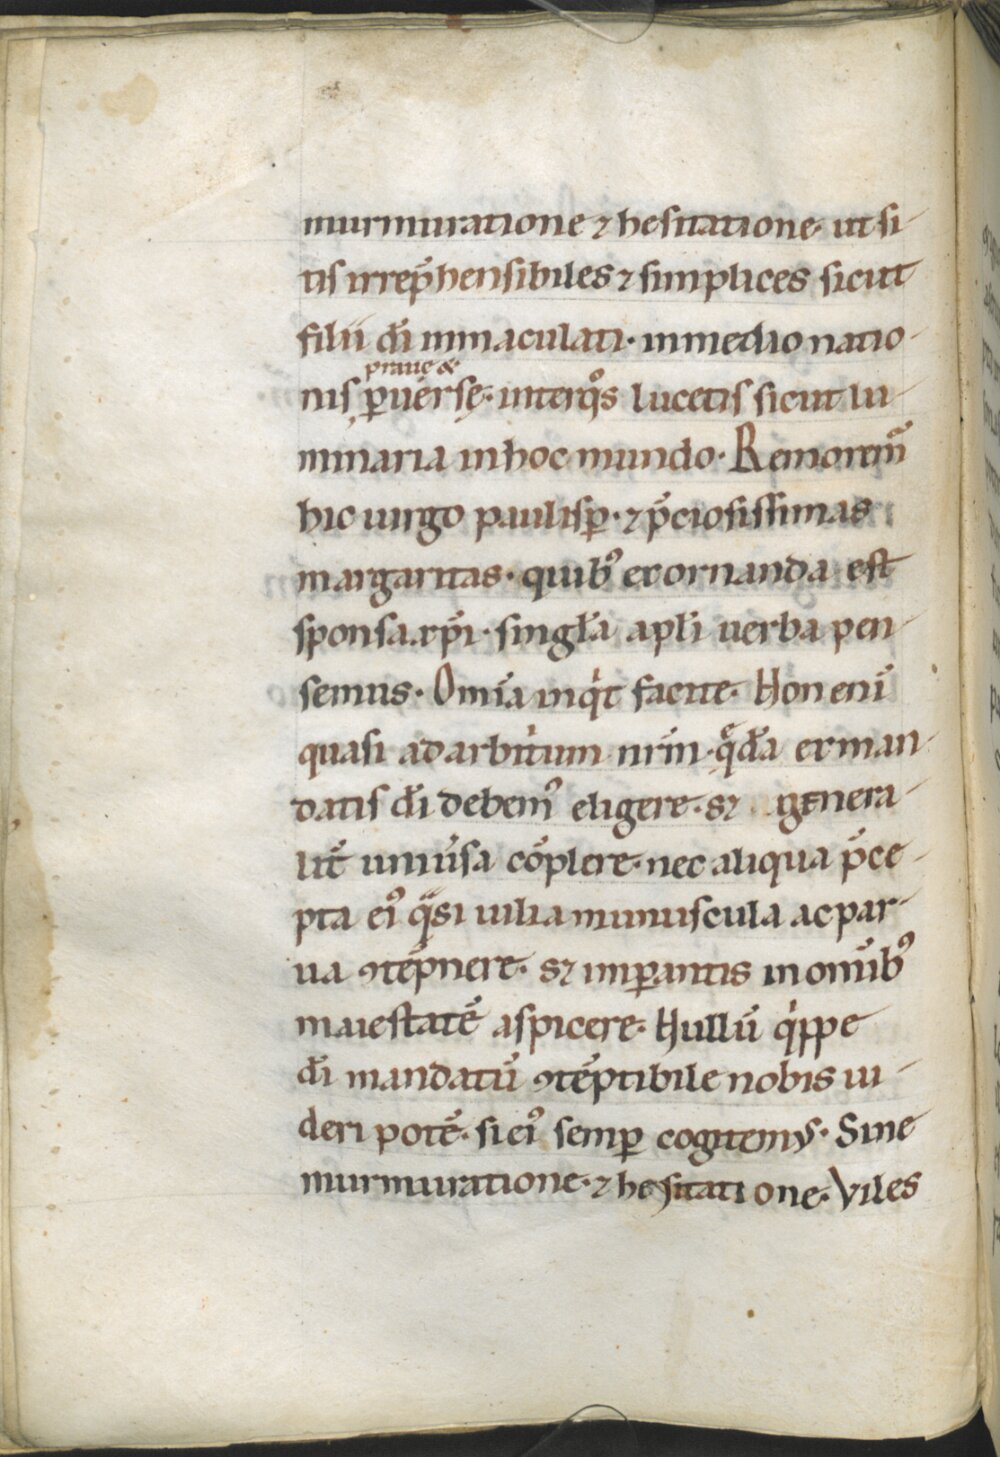 murmuratione ⁊ hesitatione· ut si-
tis irrep̄hensibiles ⁊ simplices sicut
filii d̄i inmaculati· inmedio natio-
praue &
nis ꝑuersę· interq̊s lucetis sicut lu-
minaria inhoc mundo· Remorem̄
hic uirgo paulisꝑ· ⁊ p̄ciosissimas
margaritas· quibꝰ exornanda est
sponsa xp̄i· singl̄a apl̄i uerba pen-
semus· Om̄ia inqͥt facite· Non enī
quasi ad arbitͥum nr̄m· q̄da̅ exman-
datis d̄i debemꝰ eligere· sꝫ genera-
lit̄ uniu̅sa cōplere· nec aliqua p̄ce-
pta eiꝰ qᷓsi uilia munuscula ac par-
ua ꝯtēpnere· sꝫ imꝑantis in omībꝰ
maiestatē aspicere· Nullū qͥppe
d̄i mandatū ꝯtēptibile nobis ui-
deri potē· si eiꝰ semꝑ cogitemus· Sine
murmuratione· ⁊ hesitatione· Viles